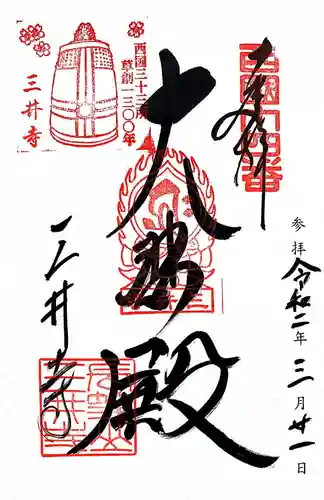 奉拝
西国十四番
大悲殿
三井寺
三井寺
西国三十三所
草創一三〇〇年
参拝 令和二年三月廿一日